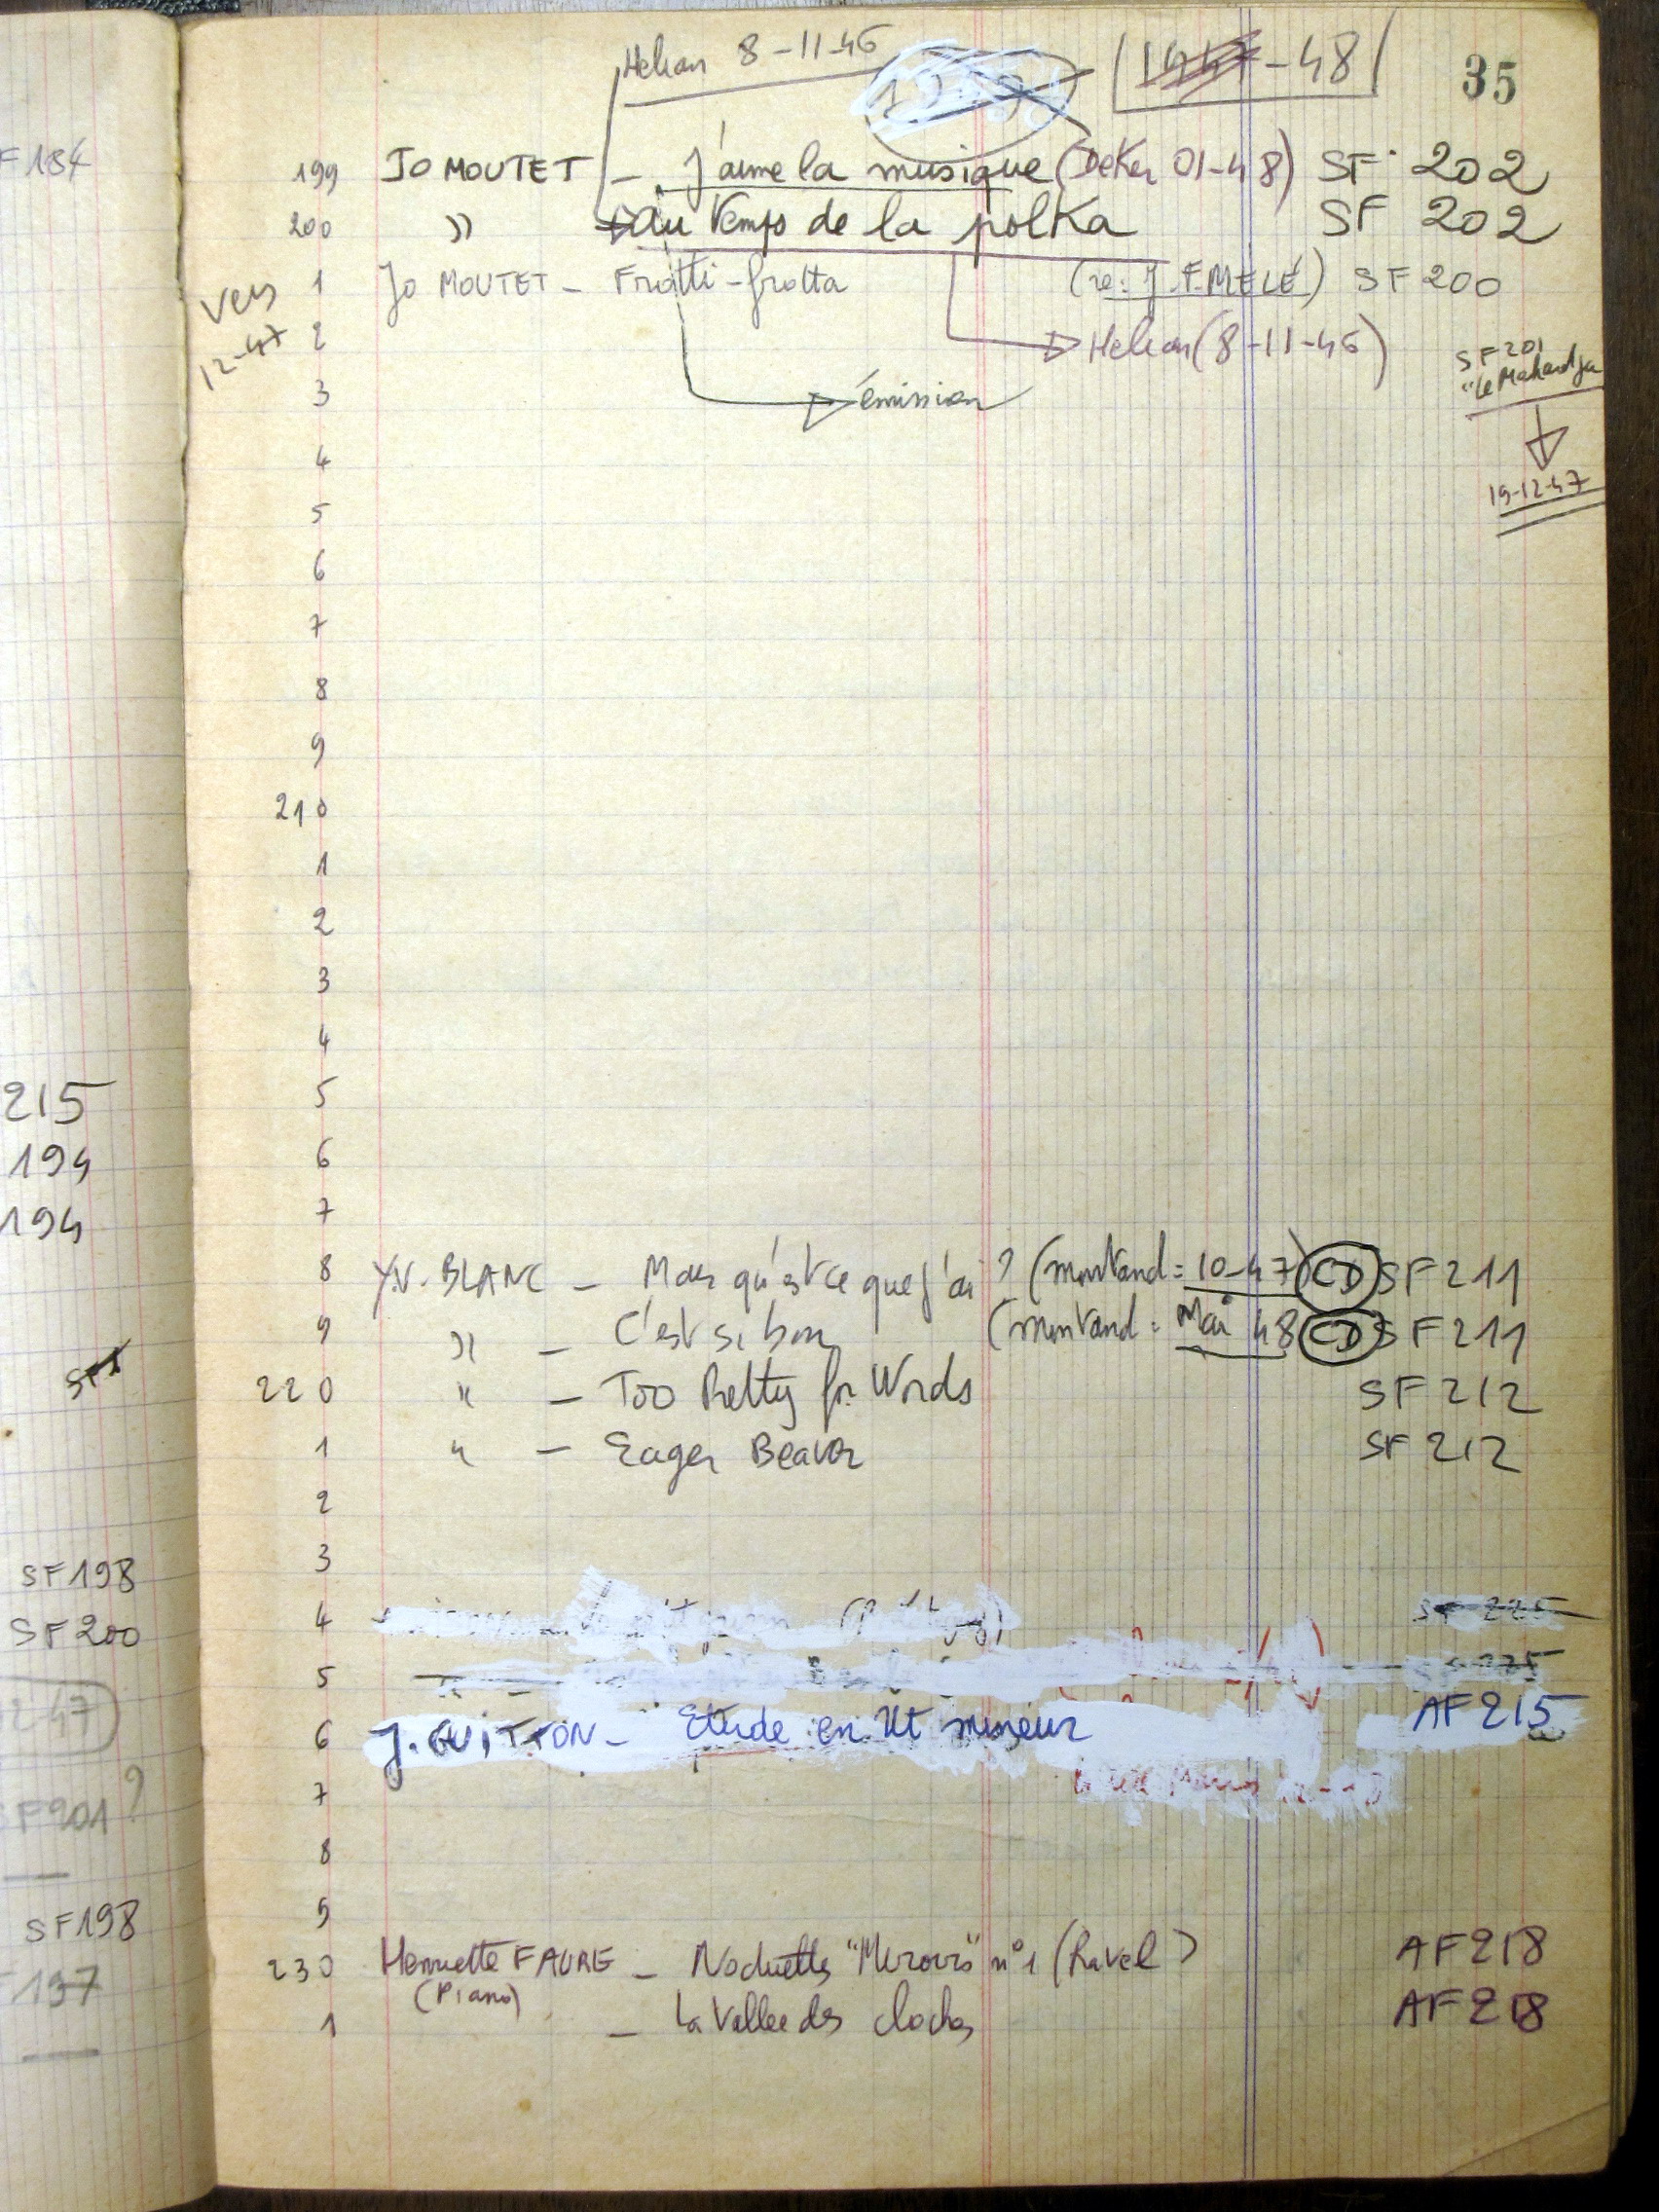 Helian 8-11-46
1947-48
35
F 184
199 JO MOUTET - J'aime la musique (Deker 01-48) SF 202
200 » au temps de la polka SF 202
1 Jo MOUTET - Frotti-frotta (re: J.F. MELÉ) SF 200
Vers
12-47
2 Helian (8-11-46)
SF 201
"Le Maharadja
3 émission
4
19-12-47
5
6
7
8
9
210
1
2
3
4
5
215
6
194
7
194
8 Y.V. BLANC - Mais qu'est ce que j'ai ? (montand = 10-47) CD SF 211
9 » - C'est si bon (montand = Mai 48 CD SF 211
220 " - Too Pretty for Words SF 212
1 " - Eager Beaver SF 212
2
3
SF 198
4 SF 225
SF 200
5
6 J. GUITTON - Etude en Ut mineur AF 215
12-47
7
SF 201 ?
8
9
SF 198
230 Henriette FAURE - Noctuelles "Miroirs" n° 1 (Ravel) AF 218
(Piano)
197
1 - La Vallee des cloches AF 218